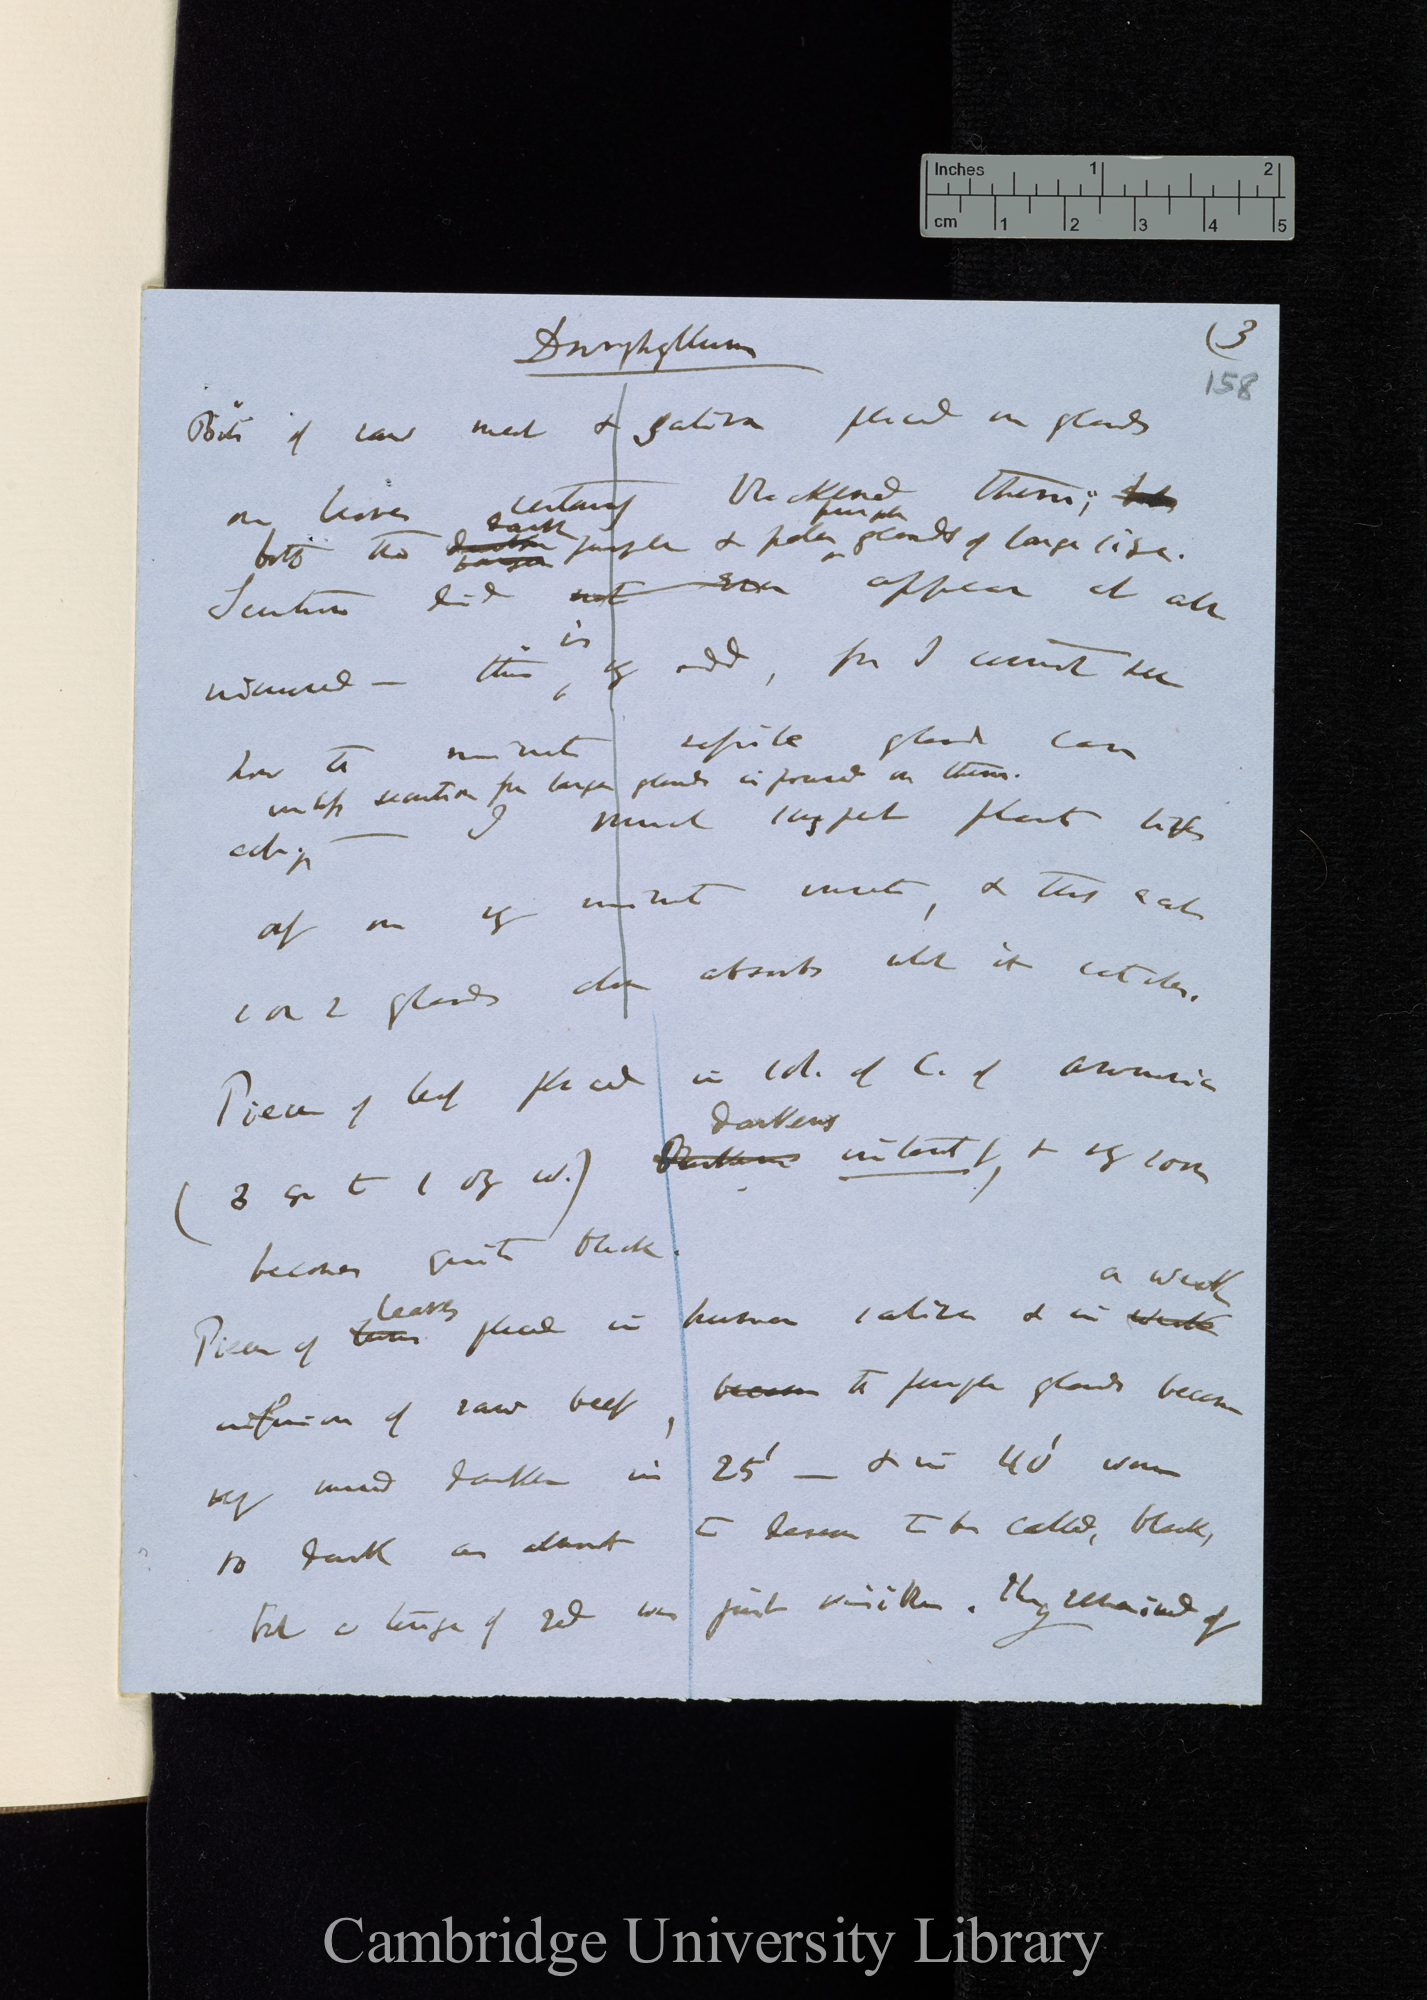 Inches 1 2
cm 1 2 3 4 5
Drosophyllum
(3
158
Bits of raw meat & gelatin placed on glands
on leaves certainly blackened them;
dark
purple
both the purple & paler glands of large size.
Secretion did not even appear at all
is
viscid — this vy odd, for I cannot see
how the minute sessile glands can
unless secretion from larger glands is poured on them.
act; — I much suspect plant lives
only on vy minute insects, & that each
1 or 2 glands alone absorbs what it catches.
Piece of leaf placed in sol. of C. of ammonia
darkens
(3 gr to 1 oz w.) darkens instantly, & vy soon
becomes quite black.
leaves a weak
Piece of placed in human saliva & in weak
infusion of raw beef, become the purple glands become
vy much darker in 25' — & in 40' were
so dark as almost to deserve to be called, black,
but a tinge of red was just visible. They remained of
Cambridge University Library